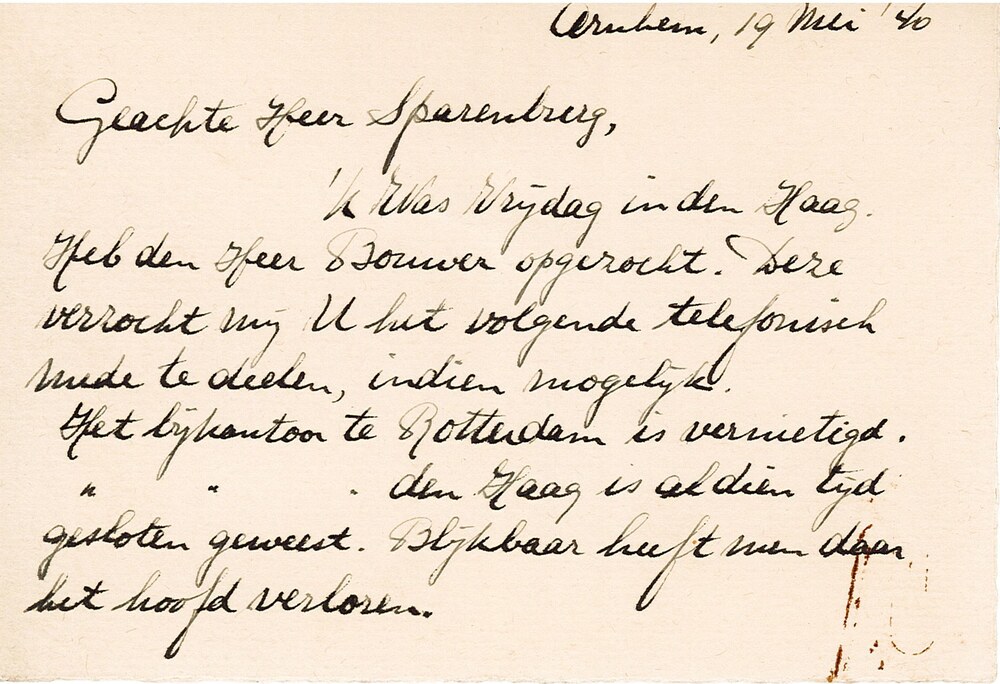 Arnhem, 19 Mei '40
Geachte Heer Sparenberg,
'k Was Vrijdag in den Haag.
Heb den Heer Bouwer opgezocht. Deze
verzocht mij U het volgende telefonisch
mede te deelen, indien mogelijk.
Het bijkantoor te Rotterdam is vernietigd.
" " " den Haag is al dien tijd
gesloten geweest. Blijkbaar heeft men daar
het hoofd verloren.